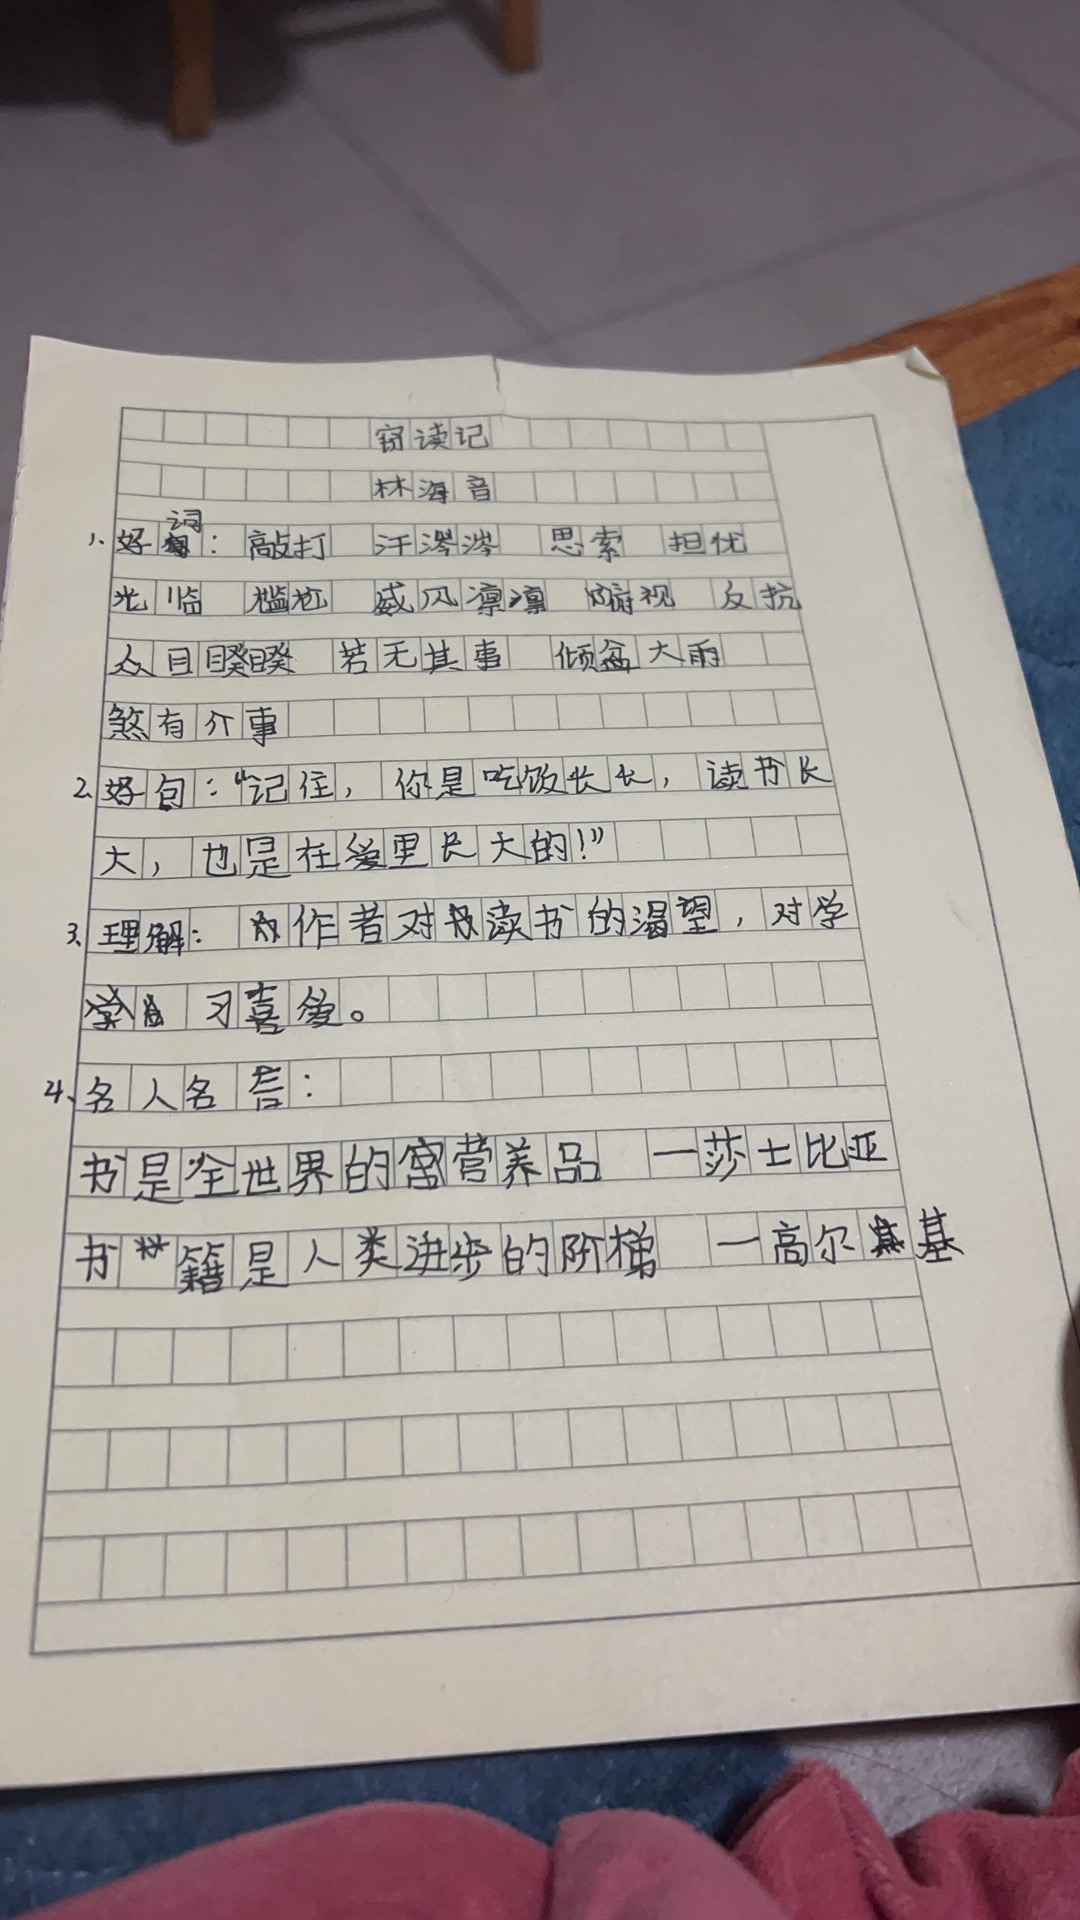 窃读记
林海音
1、好词：敲打 汗涔涔 思索 担忧
光临 尴尬 威风凛凛 俯视 反抗
众目睽睽 若无其事 倾盆大雨
煞有介事
2、好句：“记住，你是吃饭长长，读书长
大，也是在爱里长大的！”
3、理解：作者对读书的渴望，对学
习喜爱。
4、名人名言：
书是全世界的营养品 一莎士比亚
书籍是人类进步的阶梯 一高尔基